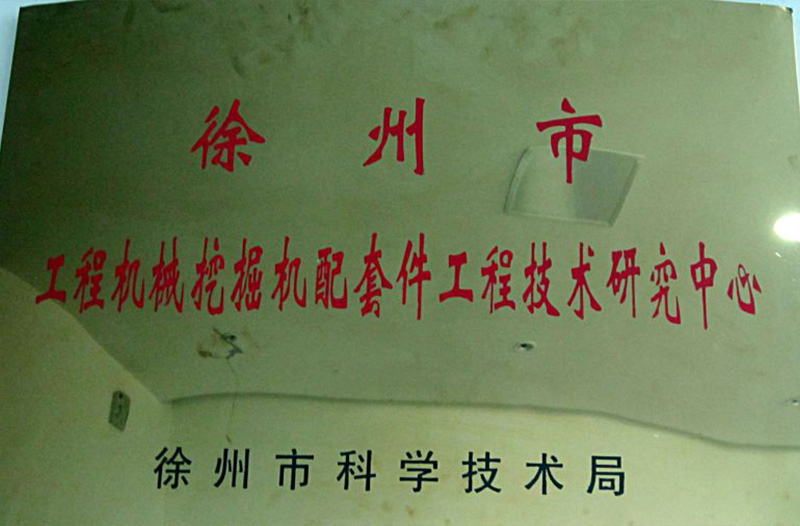 徐州市
工程机械挖掘机配套件工程技术研究中心
徐州市科学技术局